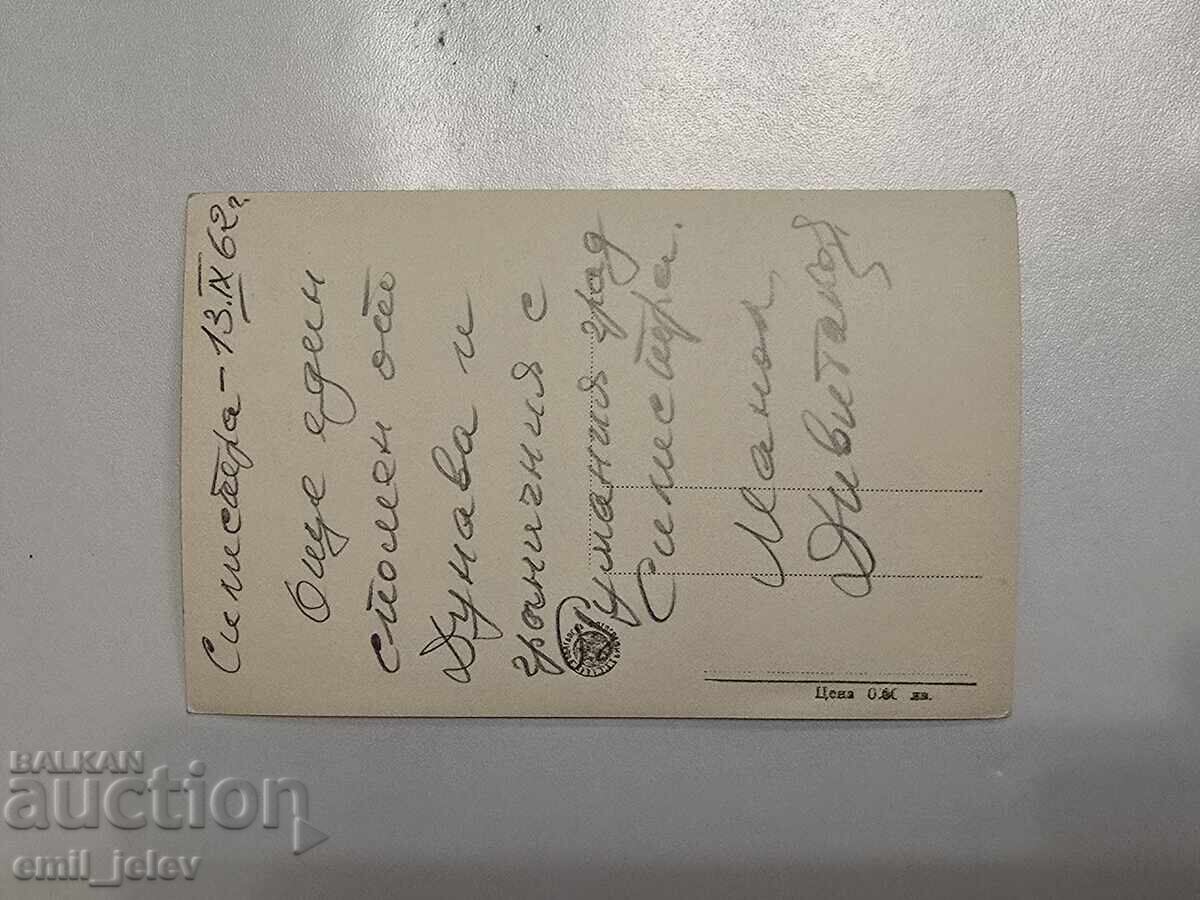 Силистра – 13.IX 62 г.
Още един
спомен от
Дунава и
граничния с
Румъния град
Силистра.
Манол
Цена 0.80 лв.
BALKAN
auction
emil_jelev